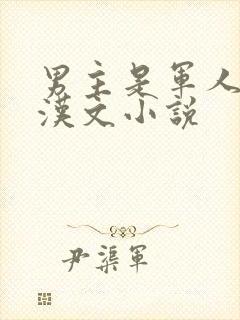 男主是军人
漢文小説
尹渠軍